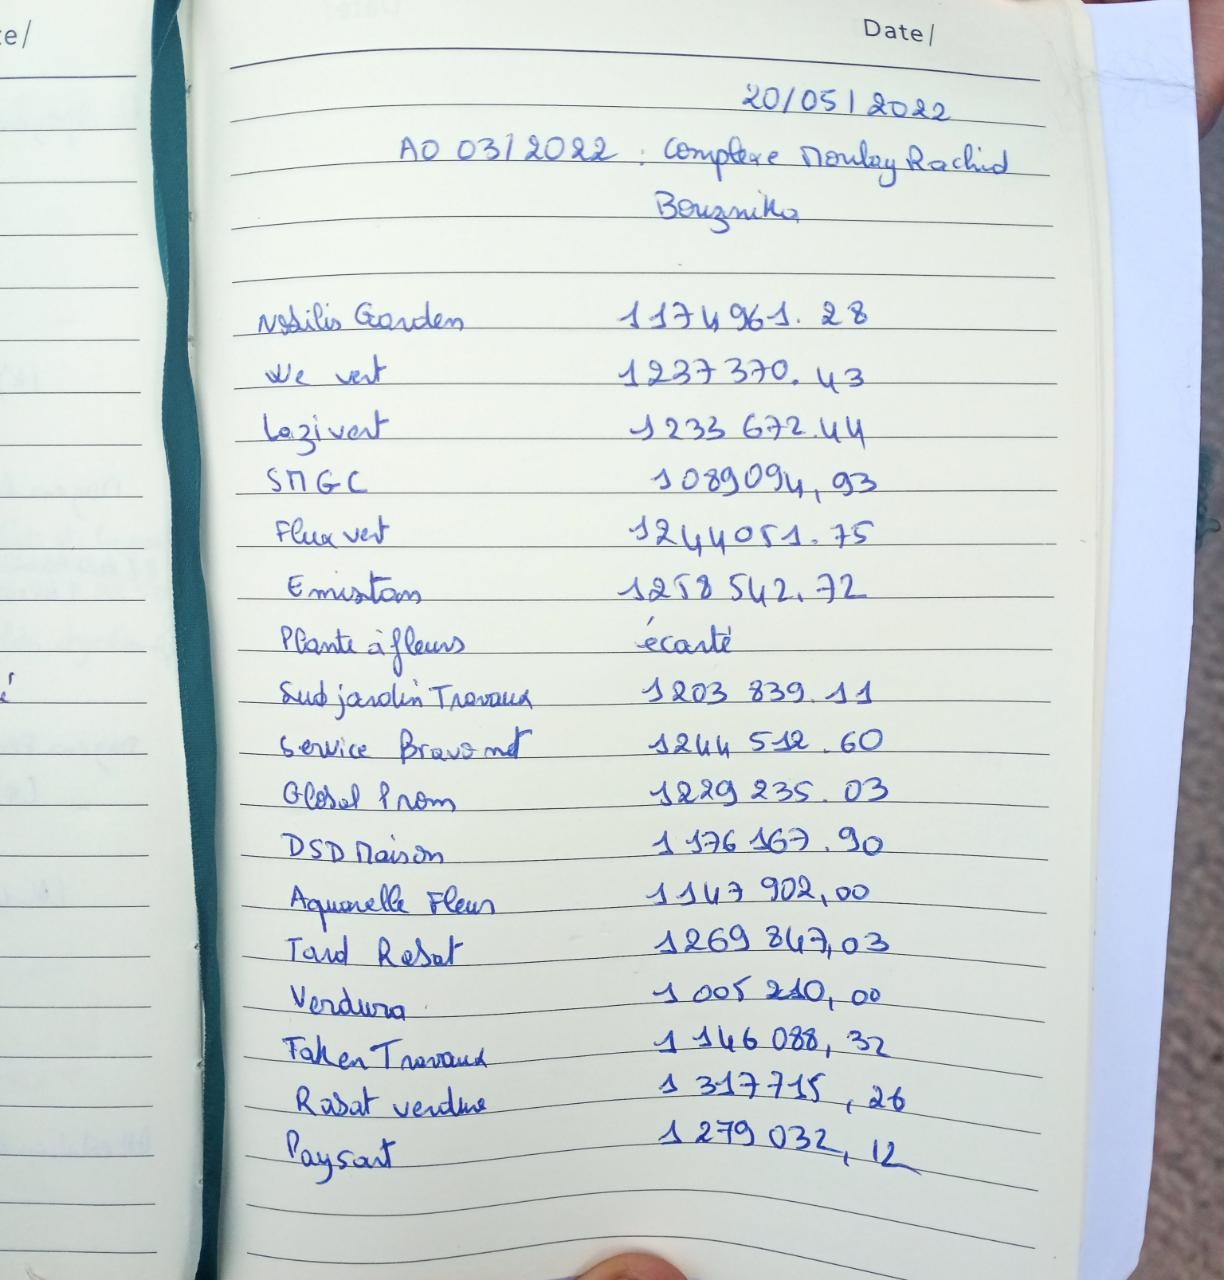 te/
Date/
20/05/2022
AO 03/2022 : Complexe Moulay Rachid
Bouznika
Nobilis Garden 1174961.28
We vert 1237370.43
Lazivert 1233672.44
SMGC 1089094,93
Flux vert 1244051.75
Emistam 1258542.72
Plante à fleurs écarté
Sud jardin Travaux 1203839.11
Service Bravo net 1244512.60
Global Prom 1229235.03
DSD Maison 1176167.90
Aquarelle Fleurs 1147902,00
Tard Rabat 1269847,03
Verdura 1005210,00
Faken Travaux 1146088,32
Rabat verdure 1317715,26
Paysart 1279032,12